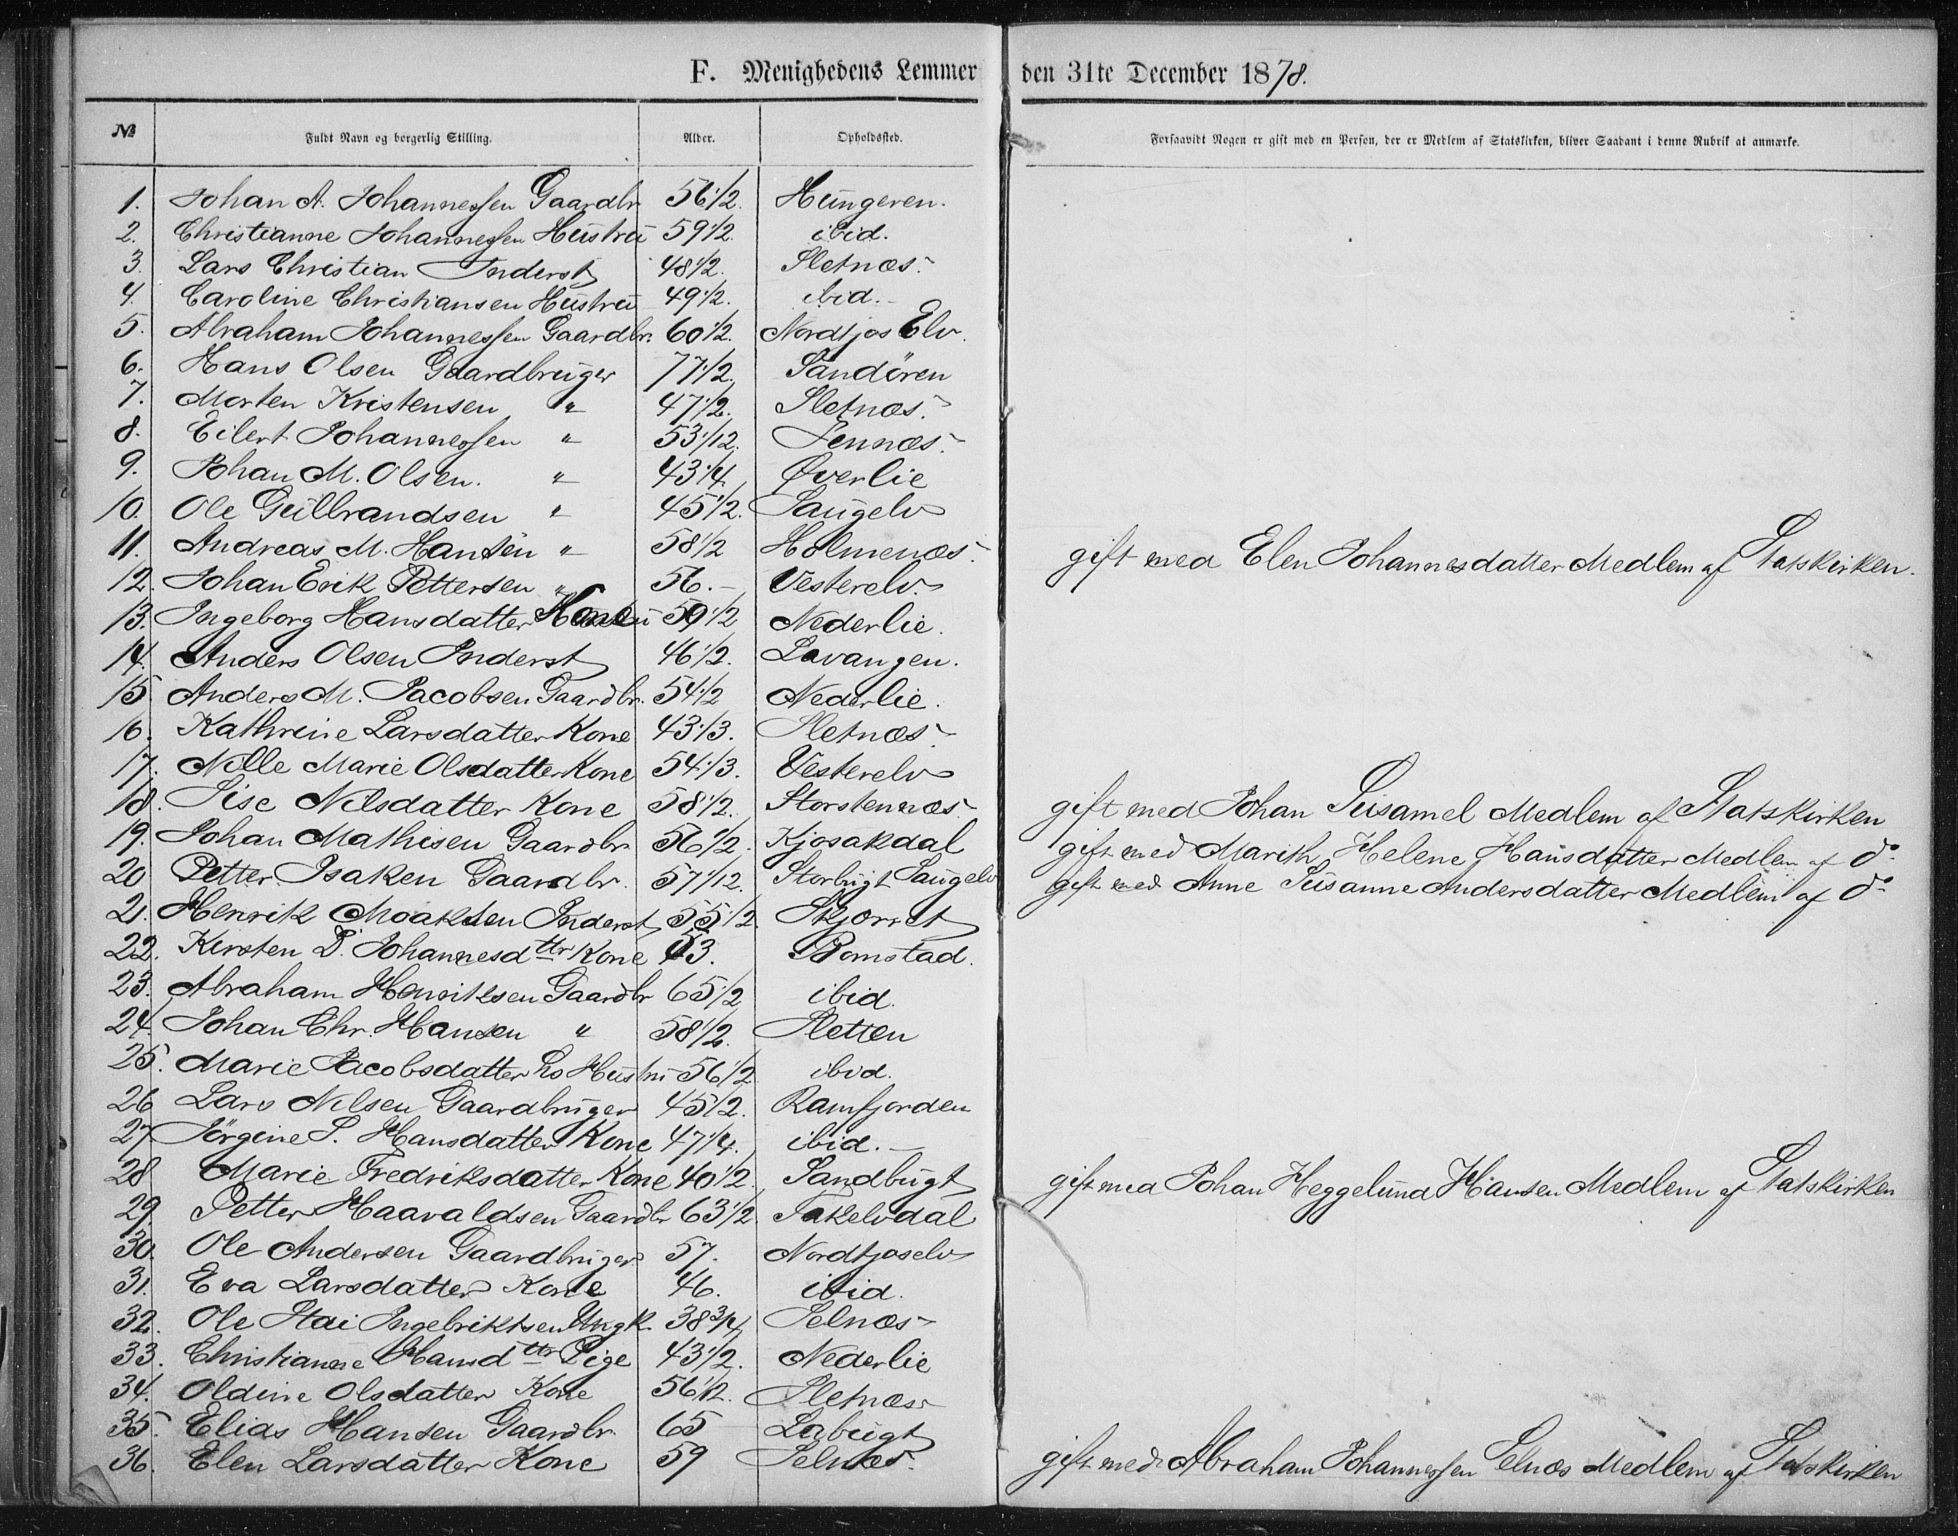 F. Menighedens Lemmer den 31te December 1878.
№ Fuldt Navn og borgerlig Stilling. Alder. Opholdssted. Forsaavidt Nogen er gift med en Person, der er Medlem af Statskirken, bliver Saadant i denne Rubrik at anmærke.
1. Johan A. Johannessen Gaardbr 56 1/2. Hungeren.
2. Christianne Johannessen Hustru 59 1/2. ibid.
3. Lars Christian Inderst 48 1/2. Sletnæs.
4. Caroline Christiansen Hustru 49 1/2. ibid.
5. Abraham Johannessen Gaardbr. 60 1/2. Nordkjos Elv.
6. Hans Olsen Gaardbruger 77 1/2. Sandören
7. Morten Kristensen " 47 1/2. Sletnæs.
8. Eilert Johannessen " 53 1/12. Jennæs.
9. Johan M. Olsen. " 43 1/4. Øverlie
10. Ole Gulbrandsen " 45 1/2. Saugelv
11. Andreas M. Hansen " 58 1/2 Holmenæs. gift med Elen Johannesdatter Medlem af Statskirken.
12. Johan Erik Pettersen " 56. Vesterelv.
13. Ingeborg Hansdatter 59 1/2 Nederlie.
14. Anders Olsen Inderst 46 1/2. Lavangen.
15. Anders M. Jacobsen Gaardbr. 54 1/2 Nederlie.
16. Kathrine Larsdatter Kone 43 1/3. Sletnæs.
17. Nille Marie Olsdatter Kone 54 1/3. Vesterelv
18. Sise Nilsdatter Kone 58 1/2. Storstennæs. gift med Johan Susamel Medlem af Statskirken
19. Johan Mathisen Gaardbr 56 1/2. Kjosakdal gift med Marith Helene Hansdatter Medlem af do
20 Petter Isaken Gaardbr. 57 1/12. Storbugt Saugelv gift med Anne Susanne Andersdatter Medlem af do
21. Henrik Moaksen Inderst 55 1/2. Skjorret
22. Kirsten D. Johannesdttr Kone 53. Bomstad.
23. Abraham Henriksen Gaardbr 65 1/2 ibid.
24. Johan Chr. Hansen " 58 1/2. Sletten
25. Marie Jacobsdatter hs Hustru 56 1/2 ibid.
26 Lars Nilsen Gaardbruger 45 1/2. Ramfjorden
27 Jörgine S. Hansdatter Kone 47 1/4. ibid.
28 Marie Fredriksdatter Kone 40 1/2. Sandbugt gift med Johan Heggelund Hansen Medlem af Statskirken
29. Petter Haavaldsen Gaardbr 63 1/2. Takelvdal
30. Ole Andersen Gaardbruger 57. Nordkjoselv
31. Eva Larsdatter Kone 46. ibid.
32. Ole Stai Ingebriktsen Ungk. 38 3/4 Selnæs
33. Christianne Hansdttr Pige 43 1/2. Nederlie
34. Oldine Olsdatter Kone 56 1/2. Sletnæs
35. Elias Hansen Gaardbr. 65 Labugt
36. Elen Larsdatter Kone 59 Selnæs. gift med Abraham Johannessen Selnæs Medlem af Statskirken